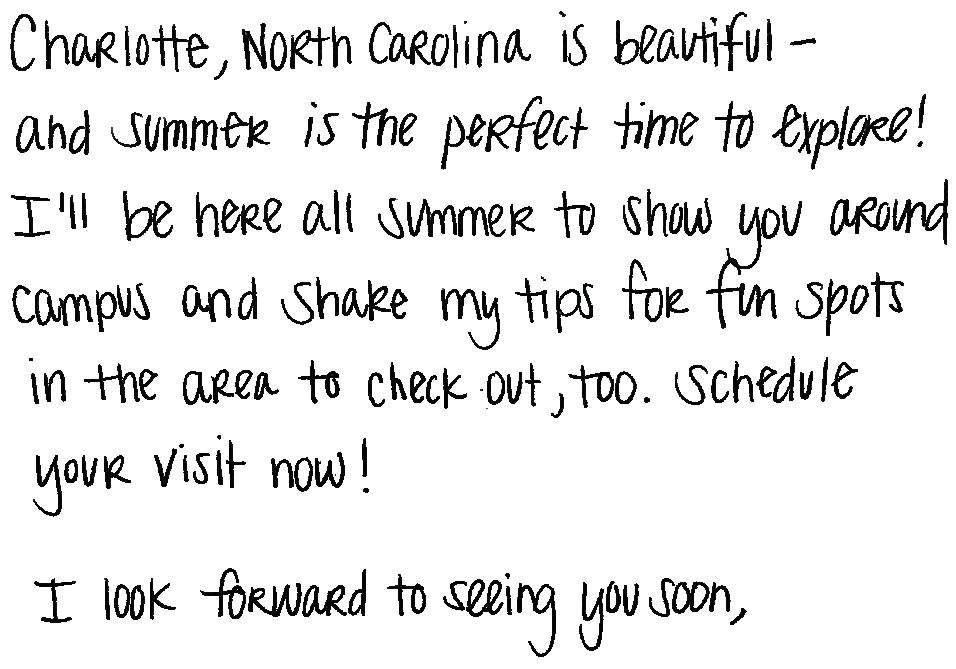 Charlotte, North Carolina is beautiful -
and summer is the perfect time to explore!
I'll be here all summer to show you around
campus and share my tips for fun spots
in the area to check out, too. Schedule
your visit now!
I look forward to seeing you soon,